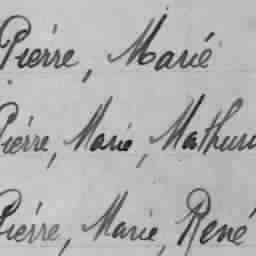 Piérre, Marié
Piérre, Marie, Mathuri
Piérre, Marie, René